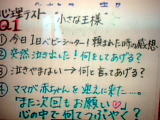 心理テスト 小さな王様
Q1
① 今日1日ベビーシッター!頼まれた時の感想
② 突然泣き出した!何をしてあげる?
③ 泣きやまない…→何と言ってあげる?
④ ママが赤ちゃんを迎えに来た…。
"また次回もお願い♡"
心の中で何てつぶやく?